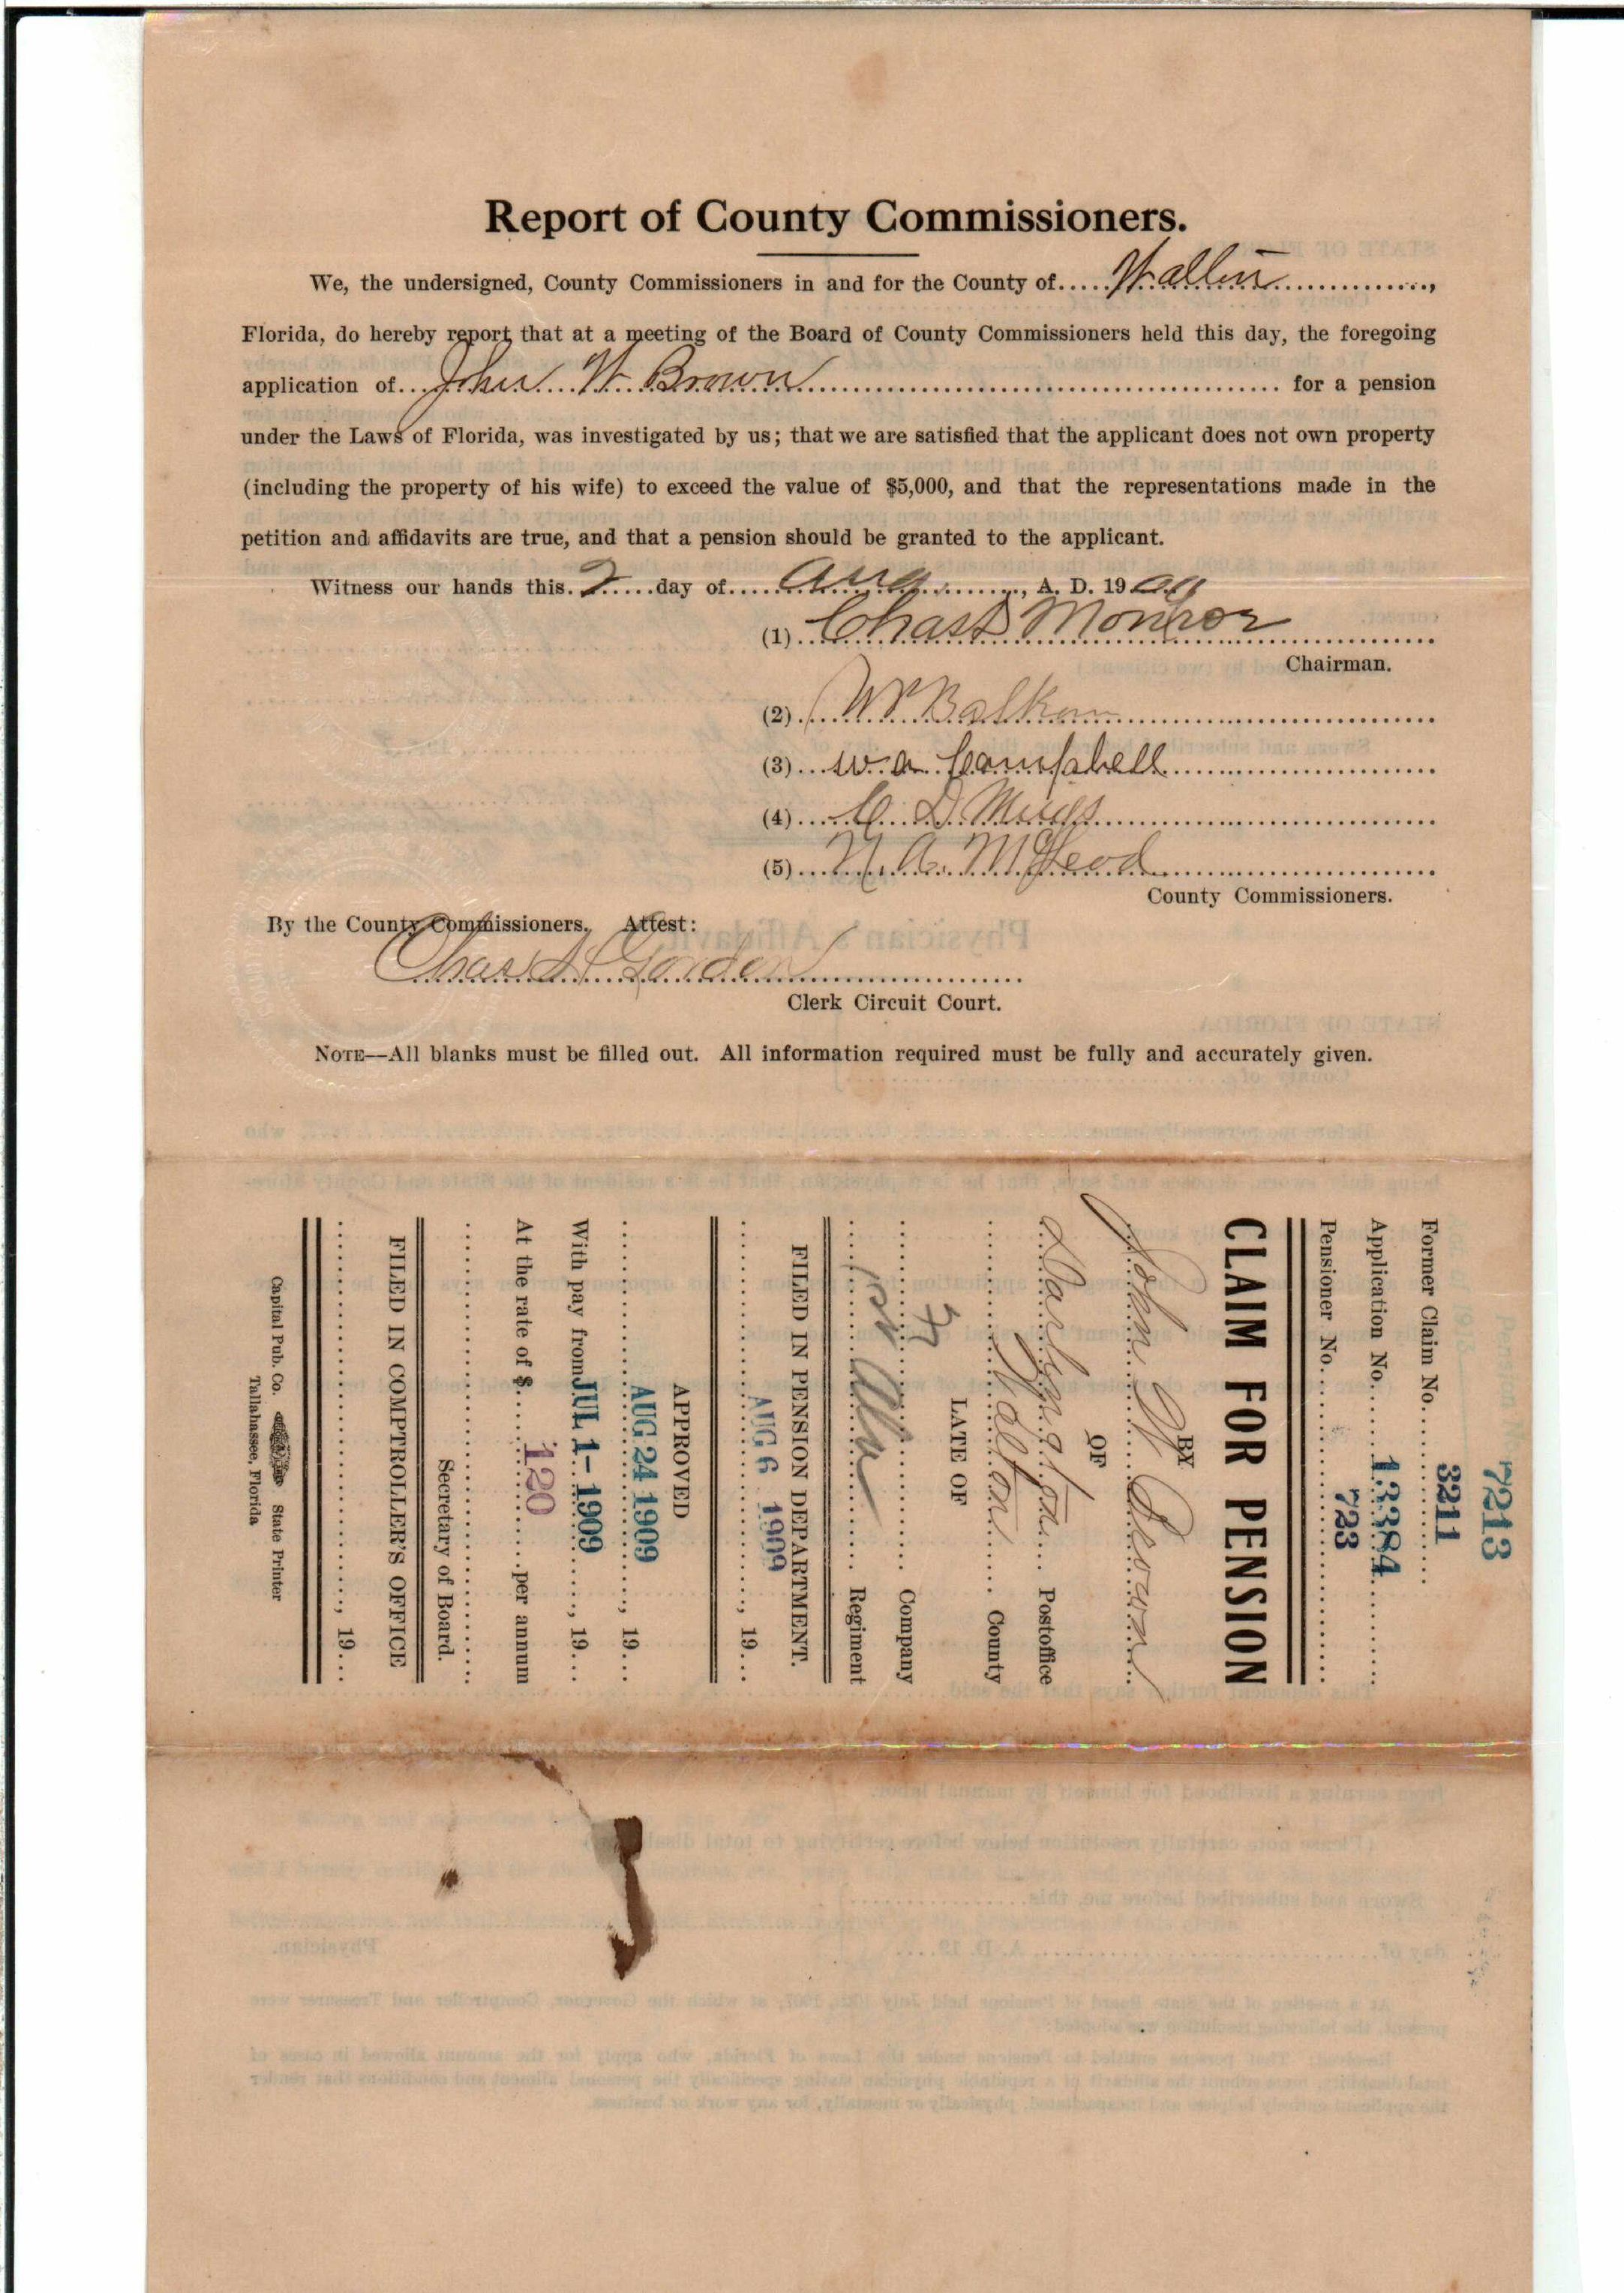 Report of County Commissioners.
We, the undersigned, County Commissioners in and for the County of.....Walton.................,
Florida, do hereby report that at a meeting of the Board of County Commissioners held this day, the foregoing
application of...John W. Brown............................................. for a pension
under the Laws of Florida, was investigated by us; that we are satisfied that the applicant does not own property
(including the property of his wife) to exceed the value of $5,000, and that the representations made in the
petition and affidavits are true, and that a pension should be granted to the applicant.
Witness our hands this..2.....day of.....Aug............, A. D. 1909
(1)...Chas
Chairman.
(2)....W
(3)...w. a. Campbell
(4)....C. D.
(5)...N. A. McLeod
County Commissioners.
By the County Commissioners, Attest:
Chas
Clerk Circuit Court.
NOTE—All blanks must be filled out. All information required must be fully and accurately given.
7213
Former Claim No. 3211
Application No. 13384
Pensioner No. 723
CLAIM FOR PENSION
BY
John W Brown
OF
Darlington Postoffice
Walton County
LATE OF
Company
1st Ala Regiment
FILED IN PENSION DEPARTMENT.
AUG 6 1909, 19...
APPROVED
AUG 24 1909, 19...
With pay from JUL 1 - 1909, 19...
At the rate of $ 120 per annum
Secretary of Board.
FILED IN COMPTROLLER'S OFFICE
, 19...
Capital Pub. Co. State Printer
Tallahassee, Florida